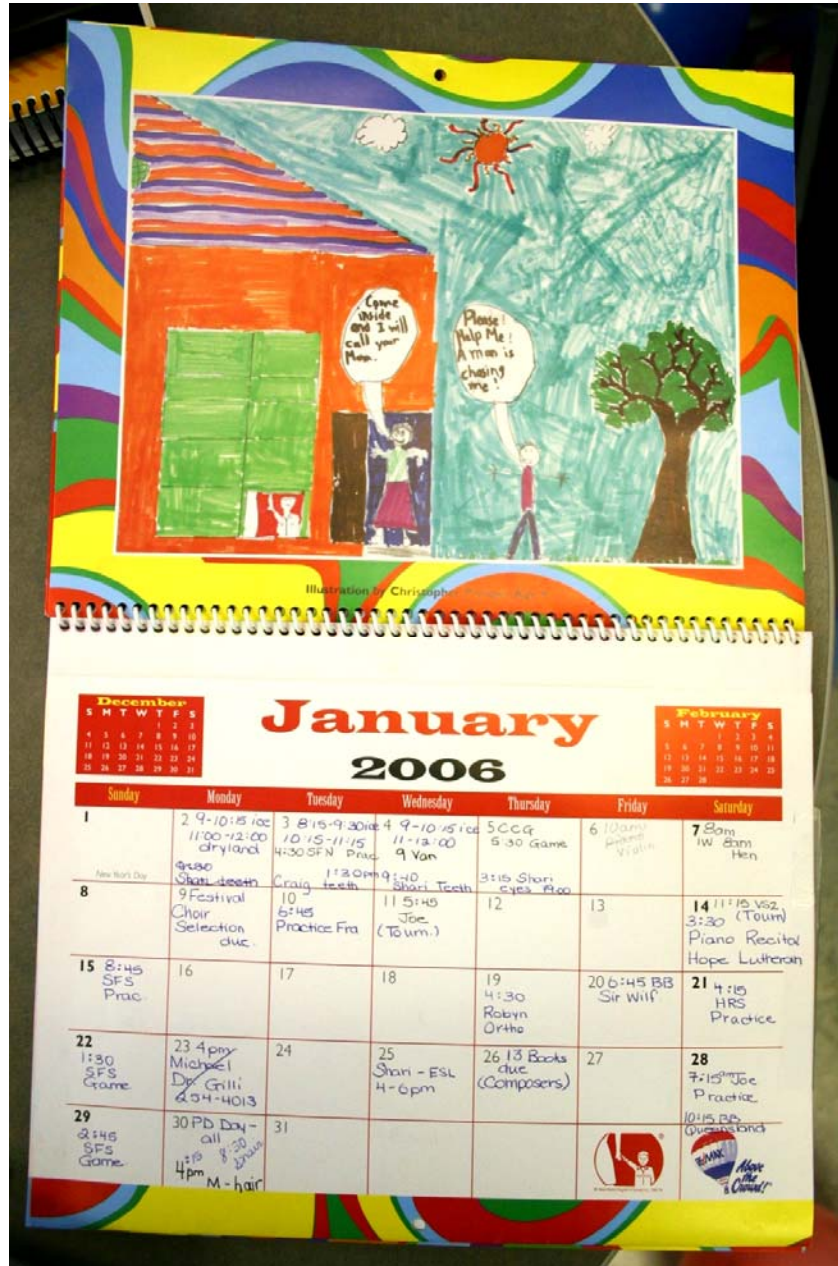 Come
inside
and I will
call your
Mom.
Please!
Help Me!
A man is
chasing
me!
Illustration by Christopher
December
S M T W T F S
1 2 3
4 5 6 7 8 9 10
11 12 13 14 15 16 17
18 19 20 21 22 23 24
25 26 27 28 29 30 31
January
2006
February
S M T W T F S
1 2 3 4
5 6 7 8 9 10 11
12 13 14 15 16 17 18
19 20 21 22 23 24 25
26 27 28
Sunday Monday Tuesday Wednesday Thursday Friday Saturday
1
New Year's Day
2 9-10:15 ice
11:00-12:00
dryland
Shari teeth
3 8:15-9:30 ice
10:15-11:15
4:30 SFN Prac
1:30pm
Craig teeth
4 9-10:15 ice
11-12:00
9 Van
9:40
Shari Teeth
5 CCG
5 30 Game
3:15 Shari
eyes
6 10am
Violin
7 8am
1W 8am
Hen
8
9 Festival
Choir
Selection
due.
10
6:45
Practice Fra
11 5:45
Joe
(Tourn.)
12
13
14 11:15 VS2
3:30 (Tourn)
Piano Recital
Hope Lutheran
15 8:45
SFS
Prac.
16
17
18
19
4:30
Robyn
Ortho
20 6:45 BB
Sir Wilf
21 4:15
HRS
Practice
22
1:30
SFS
Game
23 4pm
Michael
Dr. Gilli
254-4013
24
25
Shari - ESL
4-6pm
26 13 Books
due
(Composers)
27
28
7:15am Joe
Practice
10:15 BB
Queensland
29
2:45
SFS
Game
30 PD Day -
all
8:30
4pm
M-hair
31
RE/MAX
Above
the
Crowd!